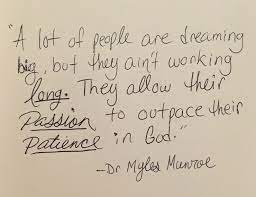 "A lot of people are dreaming
big, but they ain't working
long. They allow their
Passion to outpace their
Patience in God."
--Dr Myles Munroe